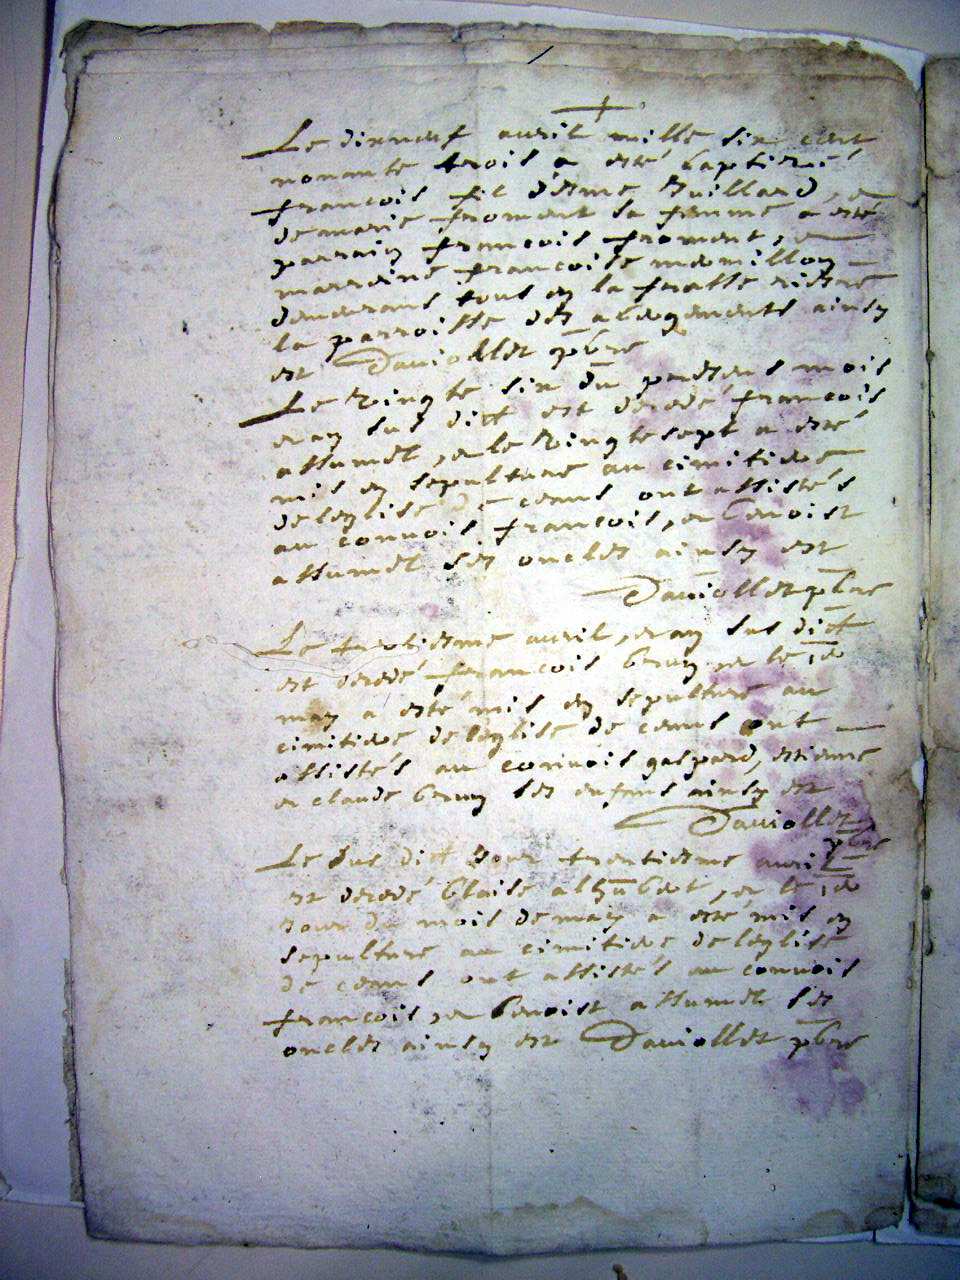 Le dixneuf auril mille six cent
nonante trois a esté baptizé
francois fil d'esme Vuillard, e
de marie froment sa femme a esté
parrain francois froment, e
marraine francoise
demeurans tous en la
la parroisse des alegements ainsy
est Dauiollet pbre
Le vingte six du present mois
et an sus dict est decedé francois
assumel, et le vingte sept a esté
mis en sepulture au cimitiere
de leglise de ceans ont assistés
au conuois francois, et benoist
assumel ses oncles ainsy est
Dauiollet pbre
Le trotiesme auril, et an sus dict
est decedé francois bruy, et le
may a esté mis en sepulture au
cimitiere de leglise de ceans ont
assistés au conuois gaspard, estienne
et claude bruy ses enfans ainsy est
Dauiollet
pbre
Le sus dict Jour trentiesme auril
est decedé blaise, et le
Jour du mois de may a esté mis en
sepulture au cimitiere de leglise
de ceans ont assistés au conuois
francois, et benoist assumel ses
oncles ainsy est Dauiollet pbre